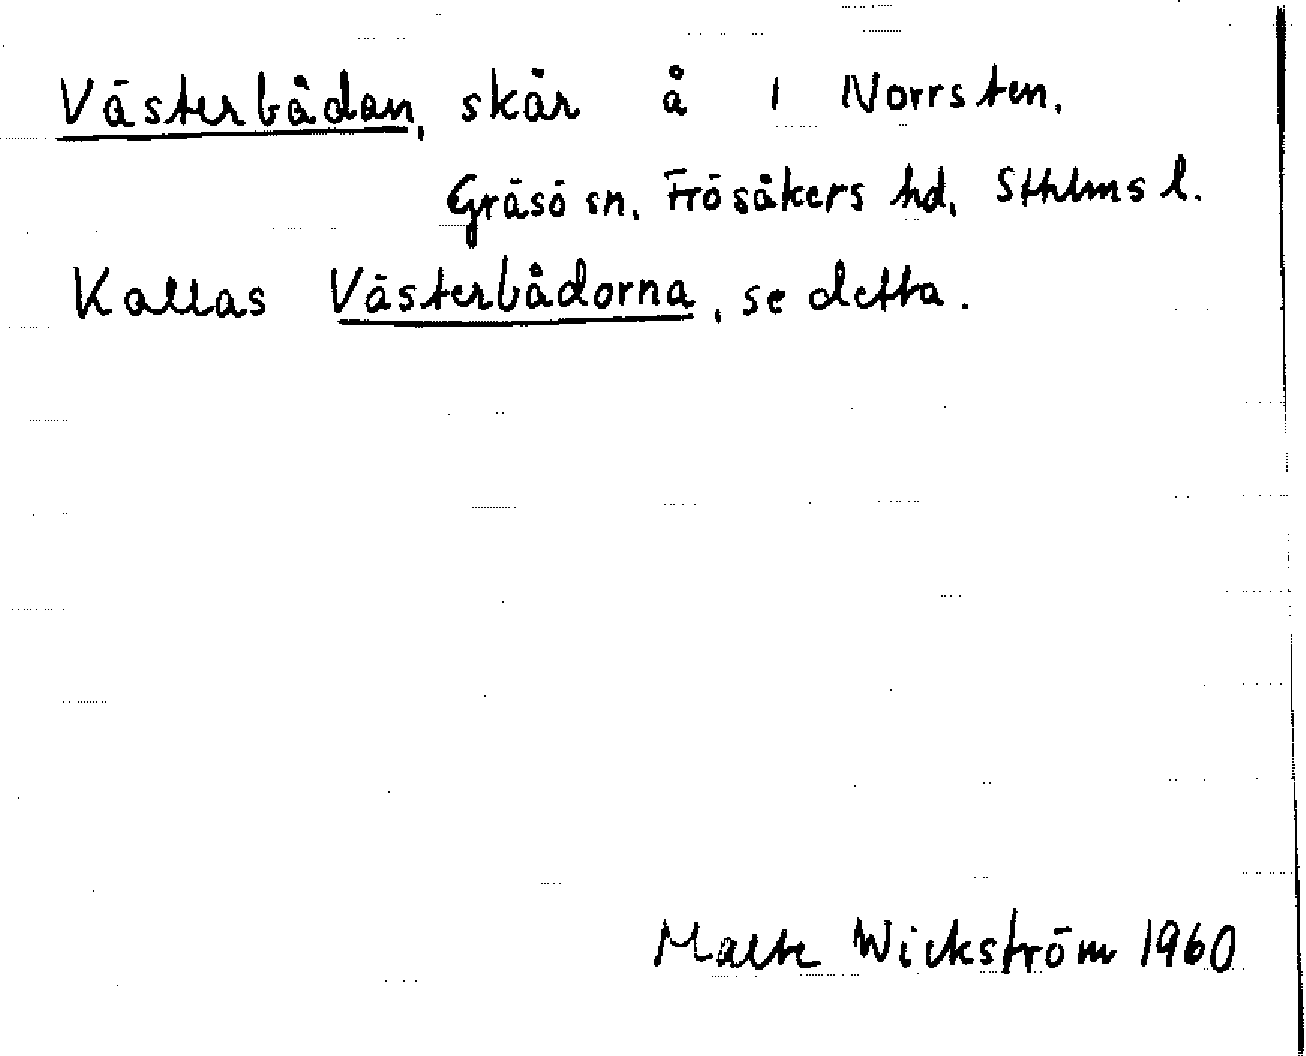 Västerbådan, skär å 1 Norrsten,
Gräsö sn, Frösåkers hd, Sthlms l.
Kallas Västerbådorna, se detta.
Malte Wickström 1960